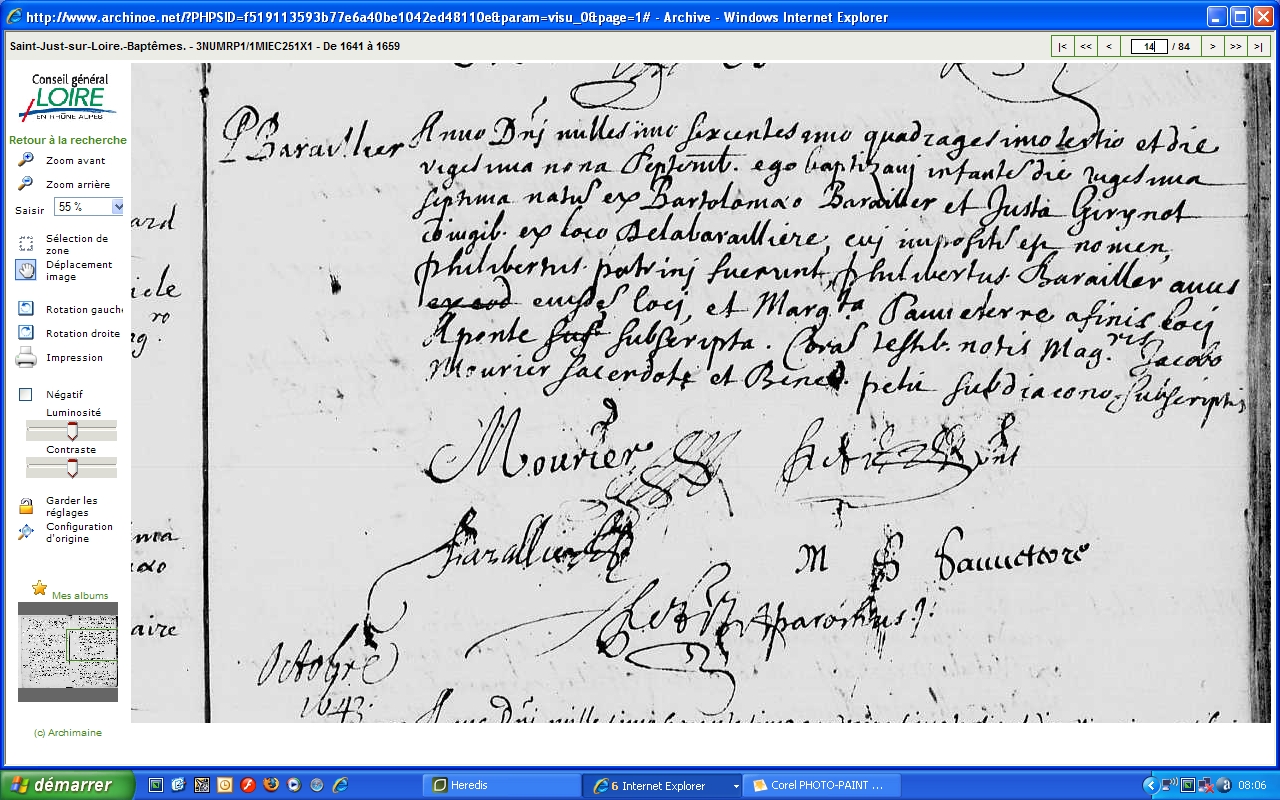 http://www.archinoe.net/?PHPSID=f519113593b77e6a40be1042ed48110e&param=visu_0&page=1# - Archive - Windows Internet Explorer
Saint-Just-sur-Loire.-Baptêmes. - 3NUMRP1/1MIEC251X1 - De 1641 à 1659
|< << < 14 / 84 > >> >|
Conseil général
LOIRE
EN RHÔNE ALPES
Retour à la recherche
Zoom avant
Zoom arrière
Saisir 55 %
Sélection de
zone
Déplacement
image
Rotation gauch
Rotation droite
Impression
Négatif
Luminosité
Contraste
Garder les
réglages
Configuration
d'origine
Mes albums
(c) Archimaine
P Barailler
Anno Dnj millesimo sexcentesimo quadragesimo tertio et die
vigesima nona Septemb. ego baptizavj infante die vigesima
septima natus ex Bartolomæo Barailler et Justa Girynot
coniugib. ex loco Delabaralliere, cuj impositus est nomen,
philibertus. patrinj fuerunt philibertus Barailler avus
eiusdem locj, et Margta Pauveterre afinis locj
Aponte subscripta. Coras testib. notis Mag.ris Jacobo
Mourier sacerdote et Bened. petit subdiacono subscriptis
Mourier
Barallier
M S Sauvetere
parochus
Octobre
1643.
ard
icle
ro
aire
démarrer
Heredis
6 Internet Explorer
Corel PHOTO-PAINT ...
08:06